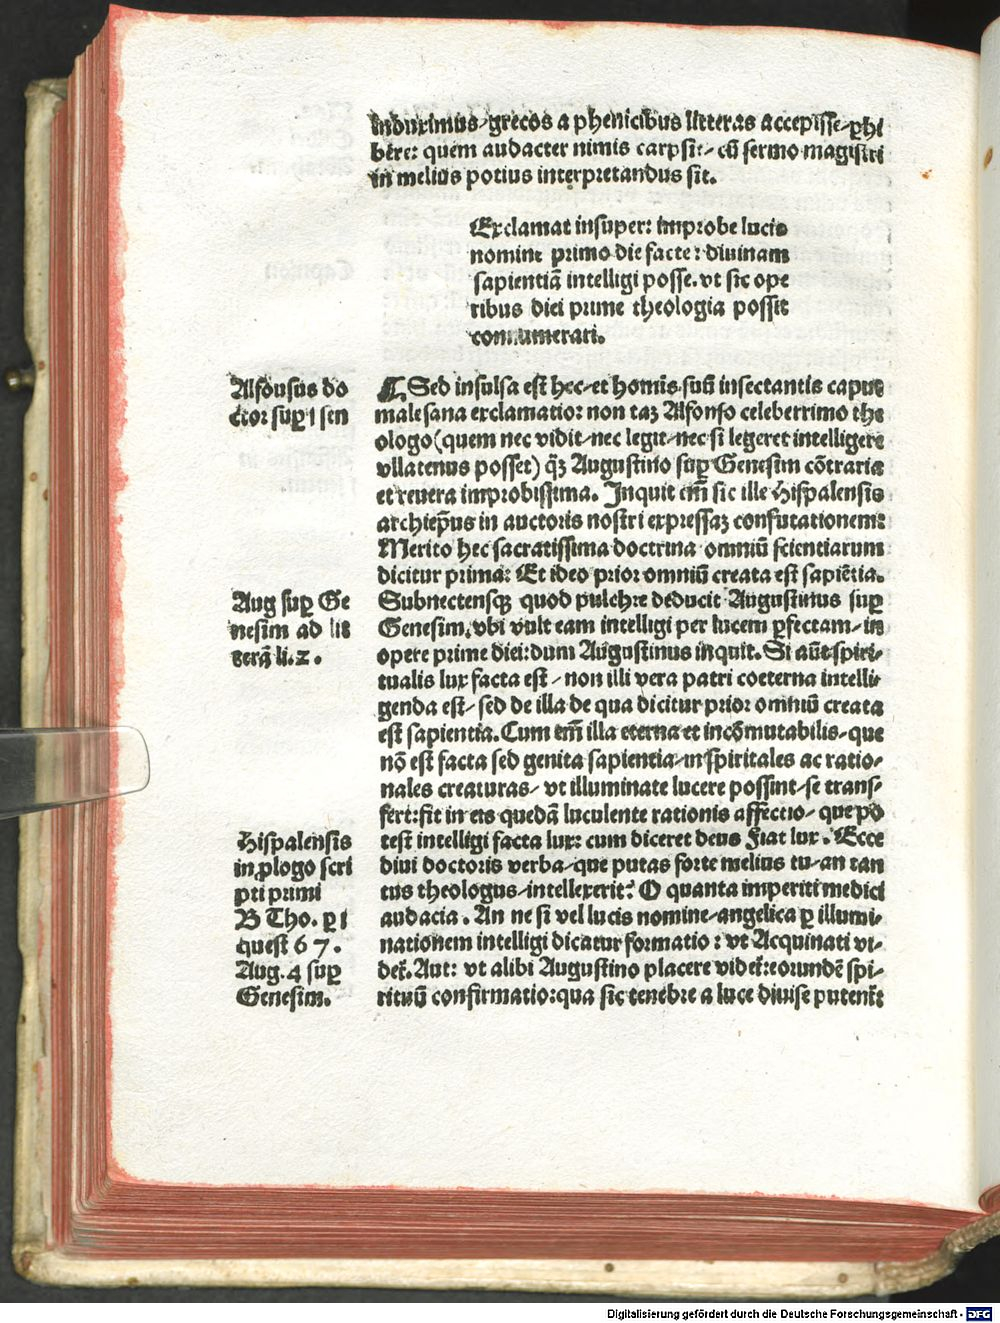 induximus/ grecos a phenicibus litteras accepisse/ ꝑhi
bere: quem audacter nimis carpsit/ cū sermo magistri
in melius potius interpretandus sit.
Exclamat insuper: improbe lucis
nomine primo die facte: diuinam
sapientiā intelligi posse. vt sic ope
ribus diei prime theologia possit
connumerari.
Alfonsus do
ctor suꝑ 1 sen
¶ Sed insulsa est hec/ et homīs suū insectantis caput
malesana exclamatio: non taꝫ Alfonso celeberrimo the
ologo (quem nec vidit/ nec legit/ nec si legeret intelligere
vllatenus posset) qꝫ̄ Augustino suꝑ Genesim cōtraria
et reuera improbissima. Inquit em̄ sic ille Hispalensis
archiep̄us in auctoris nostri expressaꝫ confutationem:
Merito hec sacratissima doctrina omniū scientiarum
dicitur prima: Et ideo prior omniū creata est sapiētia.
Aug suꝑ Ge
nesim ad lit
terā li. 2.
Subnectensqꝫ quod pulchre deducit Augustinus suꝑ
Genesim, vbi vult eam intelligi per lucem ꝑfectam/ in
opere prime diei: dum Augustinus inquit. Si aūt spiri/
tualis lux facta est/ non illi vera patri coeterna intelli/
genda est/ sed de illa de qua dicitur prior omniū creata
est sapientia. Cum em̄ illa eterna et incōmutabilis/ que
nō est facta sed genita sapientia/ in spiritales ac ratio/
nales creaturas/ vt illuminate lucere possint/ se transf/
fert: fit in eis quedā luculente rationis affectio/ que po
Hispalensis
in ꝓlogo scri
pti primi
B Tho. ꝑ 1
quest 67.
Aug. 4 suꝑ
Genesim.
test intelligi facta lux: cum diceret deus Fiat lux. Ecce
diui doctoris verba/ que putas forte melius tu/ an tan
tus theologus/ intellexerit? O quanta imperiti medici
audacia. An ne si vel lucis nomine/ angelica ꝑ illumi/
nationem intelligi dicatur formatio: vt Acquinati vi/
det̄. Aut: vt alibi Augustino placere videt̄: eorundē spi/
rituū confirmatio: qua sic tenebre a luce diuise putent̄:
Digitalisierung gefördert durch die Deutsche Forschungsgemeinschaft - DFG